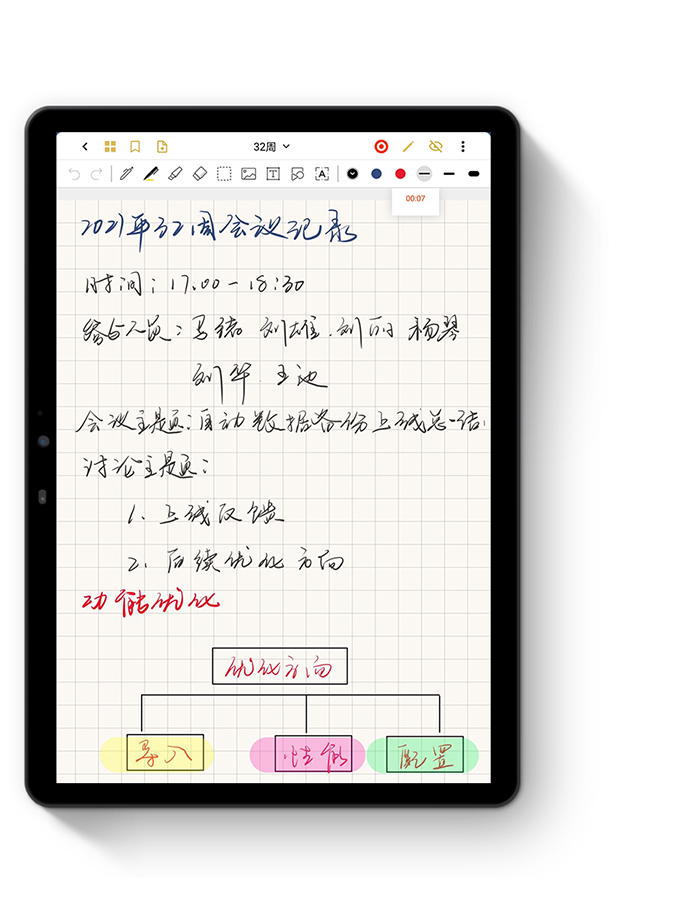 32周
00:07
2021年32周会议记录
时间：17.00－18:30
参与人员：马璐 刘雄.刘丽 杨琴
刘华.王池
会议主题：自动数据备份上线总结
讨论主题：
1. 上线反馈
2. 后续优化方向
功能优化
优化方向
导入 性能 配置